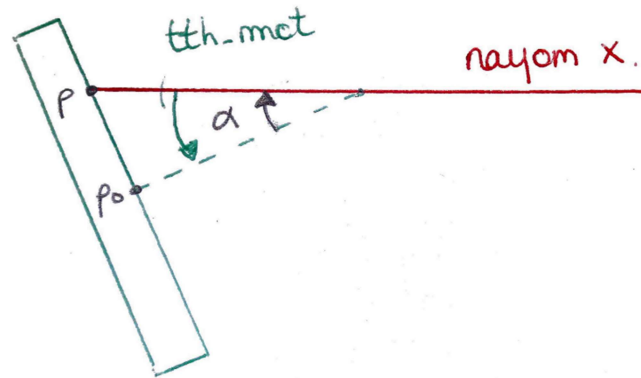 tth_mct
rayon x.
α
P
P0